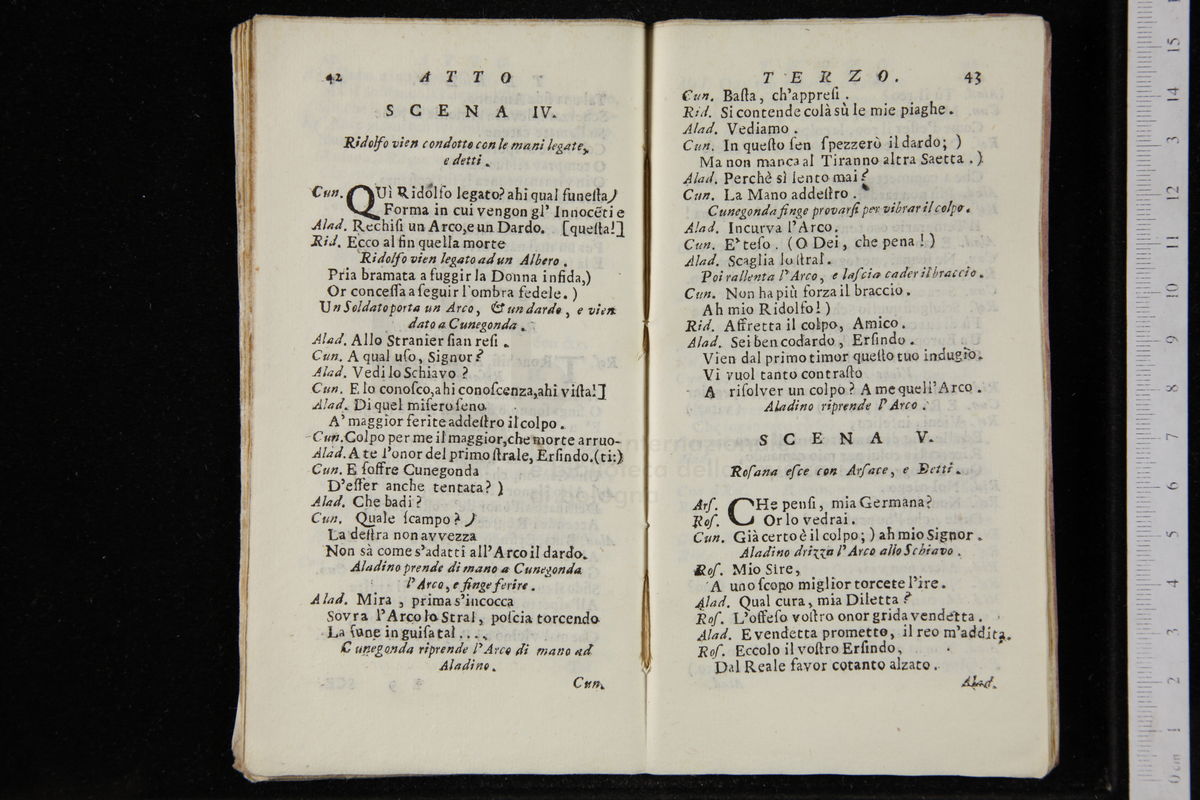 42 ATTO
SCENA IV.
Ridolfo vien condotto con le mani legate,
e detti.
Cun. QUì Ridolfo legato? ahi qual funeſta)
Forma in cui vengon gl' Innocēti e
Alad. Rechiſi un Arco, e un Dardo. [queſta!]
Rid. Ecco al fin quella morte
Ridolfo vien legato ad un Albero.
Pria bramata a fuggir la Donna infida,)
Or conceſſa a ſeguir l'ombra fedele.)
Un Soldato porta un Arco, & un dardo, e vien
dato a Cunegonda.
Alad. Allo Stranier ſian reſi.
Cun. A qual uſo, Signor?
Alad. Vedi lo Schiavo?
Cun. E lo conoſco, ahi conoſcenza, ahi viſta!]
Alad. Di quel miſero ſeno
A' maggior ferite addeſtro il colpo.
Cun. Colpo per me il maggior, che morte arruo-
Alad. A te l'onor del primo ſtrale, Erſindo. (ti:)
Cun. E ſoffre Cunegonda
D'eſſer anche tentata?)
Alad. Che badi?
Cun. Quale ſcampo?)
La deſtra non avvezza
Non sà come s'adatti all'Arco il dardo.
Aladino prende di mano a Cunegonda
l'Arco, e finge ferire.
Alad. Mira, prima s'incocca
Sovra l'Arco lo Stral, poſcia torcendo
La fune in guiſa tal....
Cunegonda riprende l'Arco di mano ad
Aladino.
Cun.
TERZO. 43
Cun. Baſta, ch'appreſi.
Rid. Si contende colà sù le mie piaghe.
Alad. Vediamo.
Cun. In queſto ſen ſpezzerò il dardo;)
Ma non manca al Tiranno altra Saetta.)
Alad. Perchè sì lento mai?
Cun. La Mano addeſtro.
Cunegonda finge provarſi per vibrar il colpo.
Alad. Incurva l'Arco.
Cun. E' teſo. (O Dei, che pena!)
Alad. Scaglia lo ſtral.
Poi rallenta l'Arco, e laſcia cader il braccio.
Cun. Non ha più forza il braccio.
Ah mio Ridolfo!)
Rid. Affretta il colpo, Amico.
Alad. Sei ben codardo, Erſindo.
Vien dal primo timor queſto tuo indugio.
Vi vuol tanto contraſto
A riſolver un colpo? A me quell'Arco.
Aladino riprende l'Arco.
SCENA V.
Roſana eſce con Arſace, e Detti.
Arſ. CHe penſi, mia Germana?
Roſ. Or lo vedrai.
Cun. Già certo è il colpo;) ah mio Signor.
Aladino drizza l'Arco allo Schiavo.
Roſ. Mio Sire,
A uno ſcopo miglior torcete l'ire.
Alad. Qual cura, mia Diletta?
Roſ. L'offeſo voſtro onor grida vendetta.
Alad. E vendetta prometto, il reo m'addita.
Roſ. Eccolo il voſtro Erſindo,
Dal Reale favor cotanto alzato.
Alad.